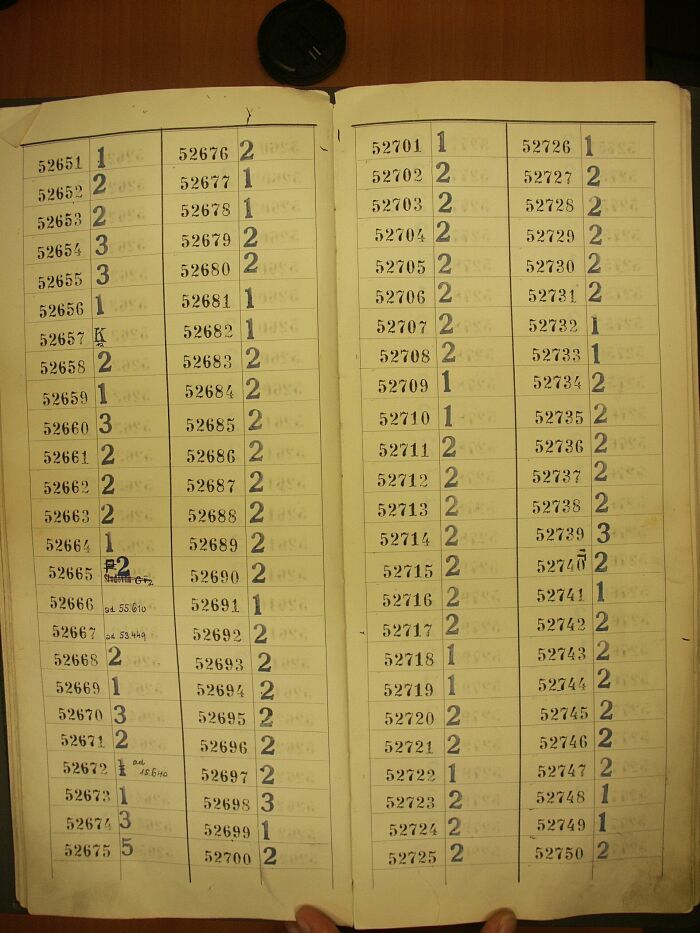 52651 1
52652 2
52653 2
52654 3
52655 3
52656 1
52657 K
52658 2
52659 1
52660 3
52661 2
52662 2
52663 2
52664 1
52665 2
52666 ad 55.610
52667 ad 53.449
52668 2
52669 1
52670 3
52671 2
52672 1 ad 15.640
52673 1
52674 3
52675 5
52676 2
52677 1
52678 1
52679 2
52680 2
52681 1
52682 1
52683 2
52684 2
52685 2
52686 2
52687 2
52688 2
52689 2
52690 2
52691 1
52692 2
52693 2
52694 2
52695 2
52696 2
52697 2
52698 3
52699 1
52700 2
52701 1
52702 2
52703 2
52704 2
52705 2
52706 2
52707 2
52708 2
52709 1
52710 1
52711 2
52712 2
52713 2
52714 2
52715 2
52716 2
52717 2
52718 1
52719 1
52720 2
52721 2
52722 1
52723 2
52724 2
52725 2
52726 1
52727 2
52728 2
52729 2
52730 2
52731 2
52732 1
52733 1
52734 2
52735 2
52736 2
52737 2
52738 2
52739 3
52740 2
52741 1
52742 2
52743 2
52744 2
52745 2
52746 2
52747 2
52748 1
52749 1
52750 2